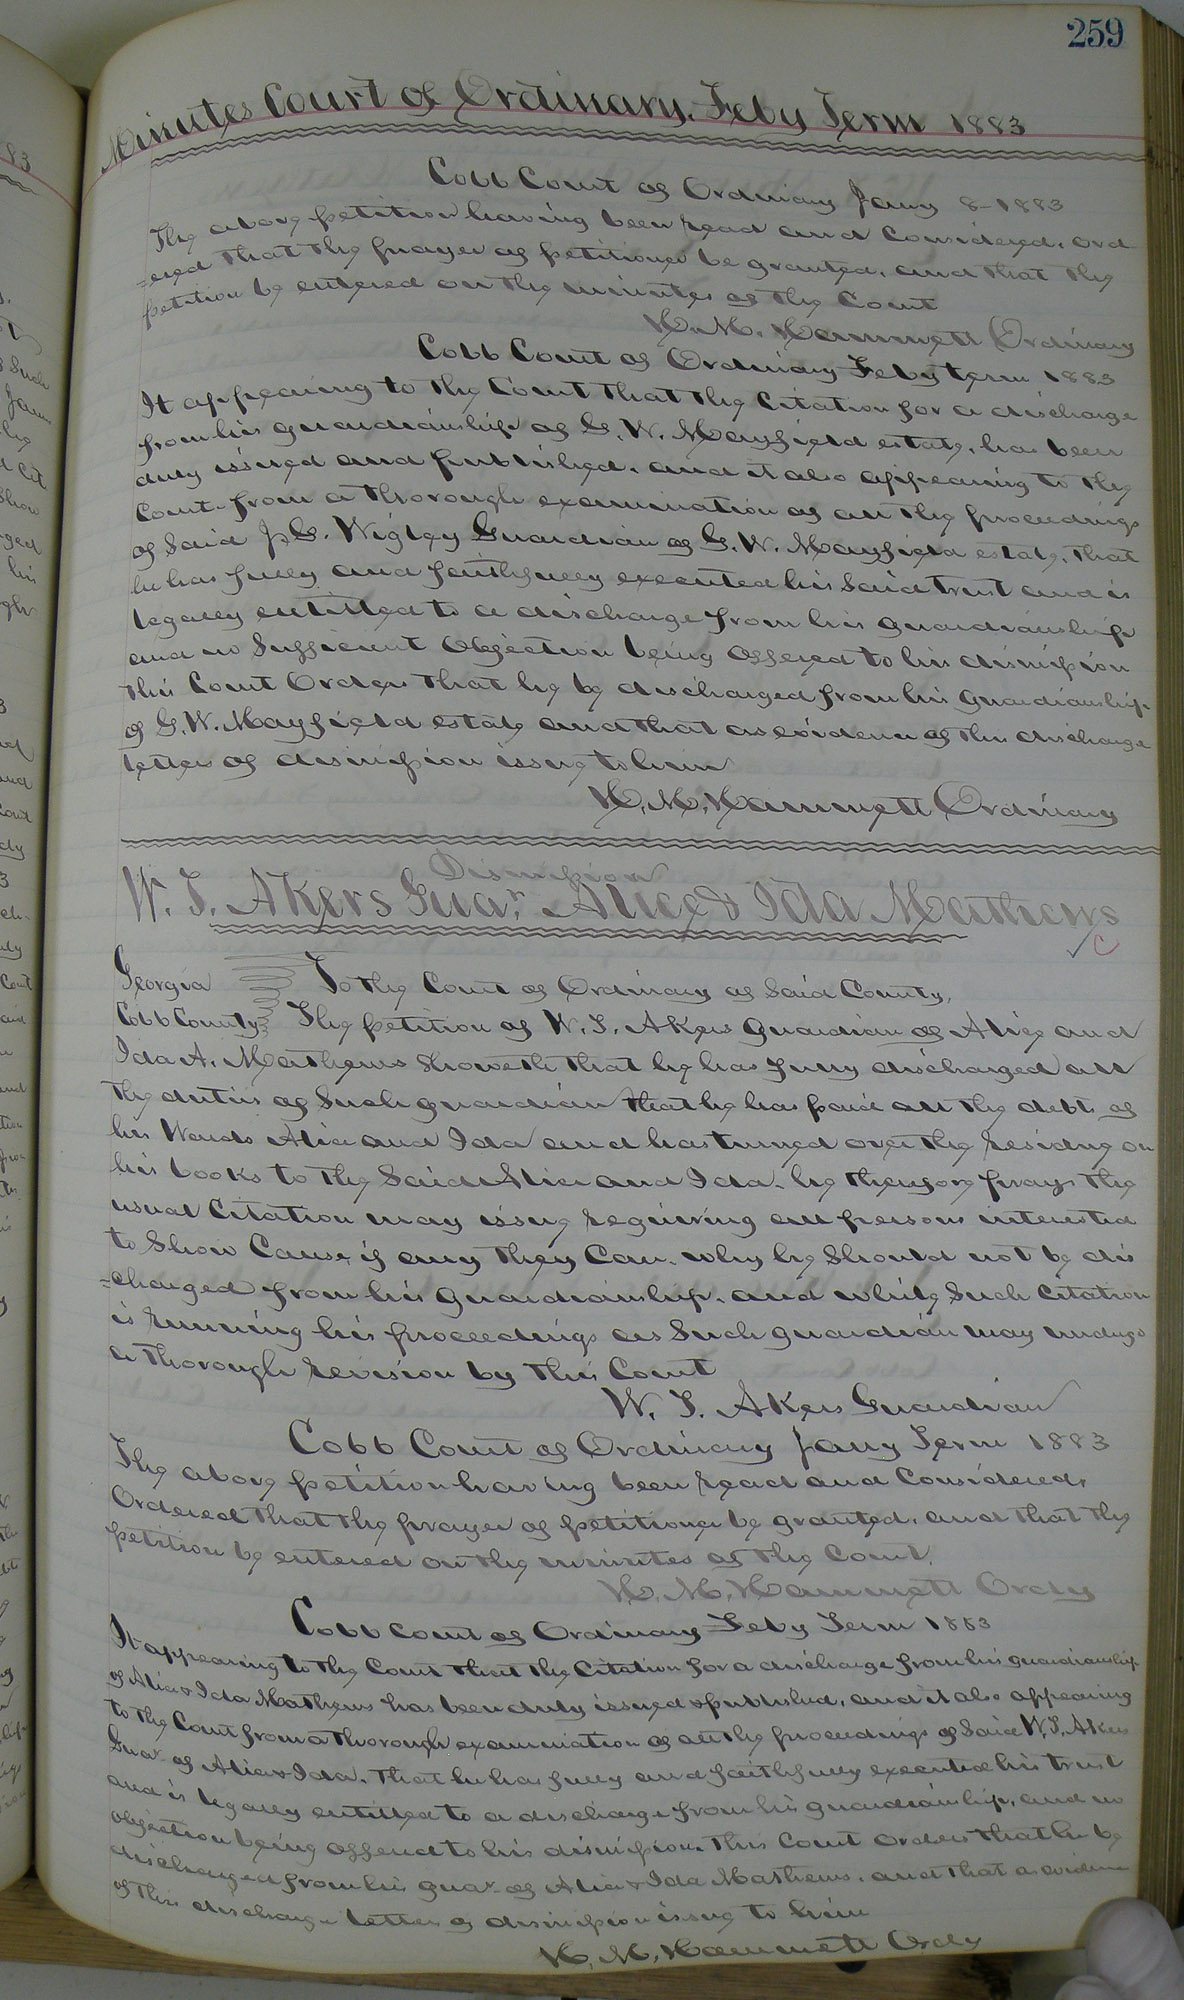 259
Minutes Court of Ordinary, Feby Term 1883
Cobb Court of Ordinary Jany 8-1883
The above petition having been read and Considered, ord
=ered that the prayer of petitioner be granted, and that the
petition be entered on the minutes of the Court
H. M. Hammett Ordinary
Cobb Court of Ordinary Feby term 1883
It appearing to the Court that the Citation for a discharge
from his guardianship of G. W. Mayfield estate, has been
duly issued and published, and it also appearing to the
Court from a thorough examination of all the proceedings
of Said J. G. Wigley Guardian of G. W. Mayfield estate, that
he has fully and faithfully executed his Said trust and is
legally entitled to a discharge from his guardianship
and no Sufficient Objection being offered to his dismission
this Court Orders that he be discharged from his guardianship
of G. W. Mayfield estate and that as evidence of this discharge
letters of dismission issue to him
H. M. Hammett Ordinary
Dismission
W. T. Akers Guar. Alice & Ida Mathews
C
Georgia To the Court of Ordinary of Said County,
Cobb County The petition of W. T. Akers guardian of Alice and
Ida A. Mathews Showeth that he has fully discharged all
the duties of Such guardian that he has paid all the debts of
his Wards Alice and Ida and has turned over the residue on
his books to the Said Alice and Ida, he therefore prays the
usual Citation may issue requiring all persons interested
to Show Cause, if any they Can, why he Should not be dis
=charged from his guardianship, and while Such Citation
is running his proceedings as Such guardian may undergo
a thorough revision by this Court
W. T. Akers Guardian
Cobb Court of Ordinary Jany Term 1883
The above petition having been read and Considered,
Ordered that the prayer of petitioner be granted, and that the
petition be entered on the minutes of the Court,
H. M. Hammett Ordy
Cobb Court of Ordinary Feby Term 1883
It appearing to the Court that the Citation for a discharge from his guardianship
of Alice & Ida Mathews has been duly issued & published, and it also appearing
to the Court from a thorough examination of all the proceedings of Said W. T. Akers
Guar of Alice & Ida, that he has fully and faithfully executed his trust
and is legally entitled to a discharge from his guardianship, and no
objection being offered to his dismission, this Court orders that he be
discharged from his guar. of Alice & Ida Mathews, and that as evidence
of this discharge letters of dismission issue to him
H. M. Hammett Ordy